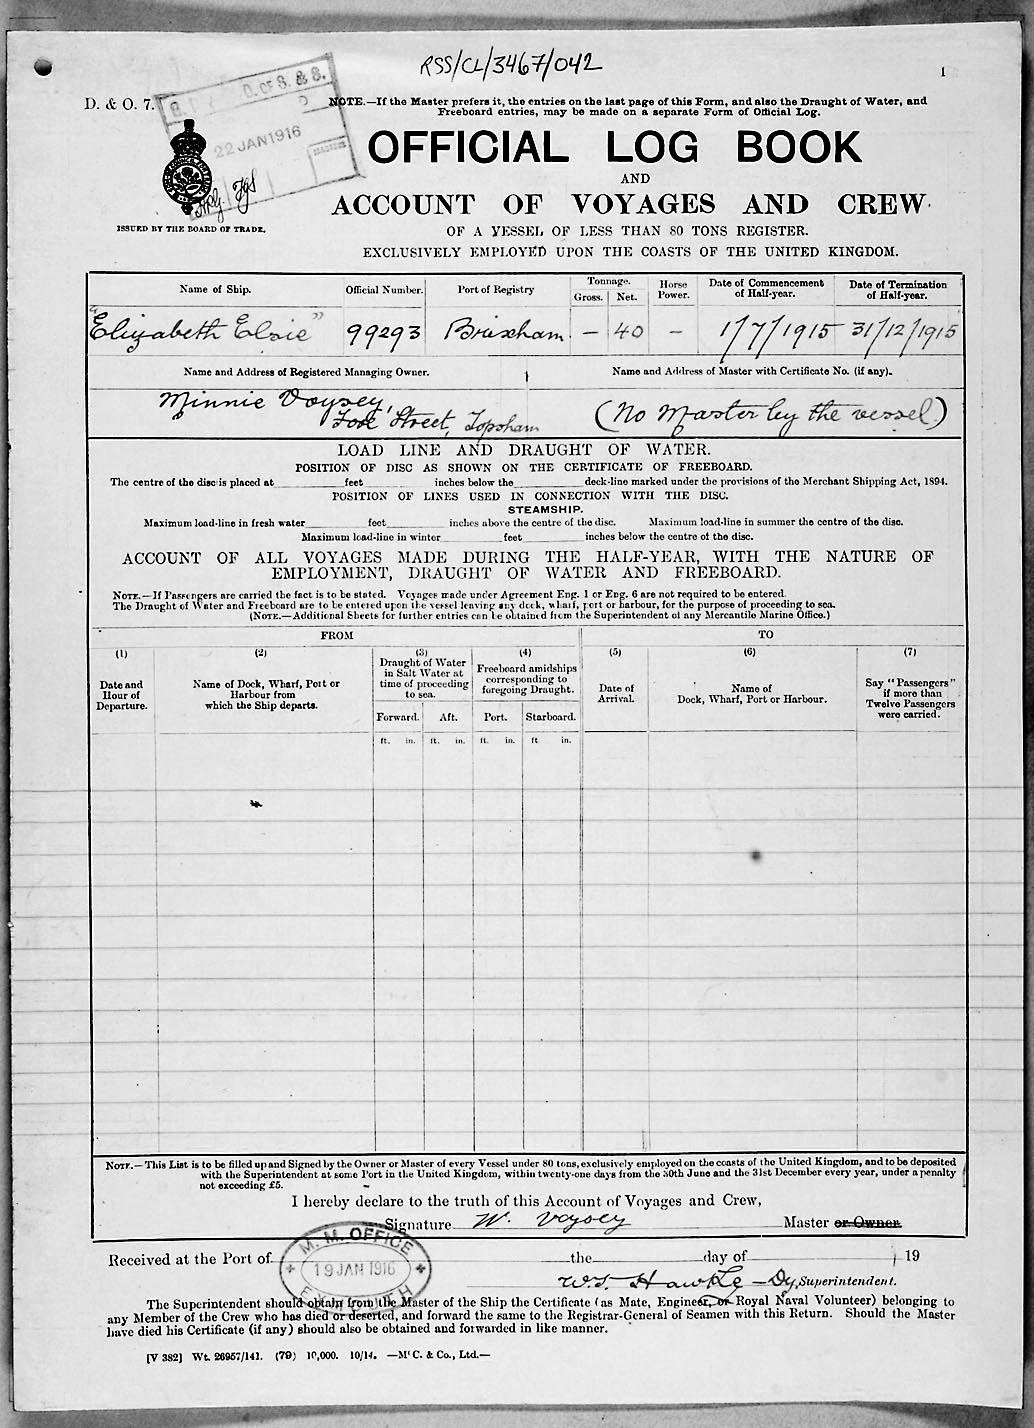 RSS/CL/3467/042
1
D. & O. 7.
D. OF S. & S.
22 JAN 1916
NOTE.—If the Master prefers it, the entries on the last page of this Form, and also the Draught of Water, and
Freeboard entries, may be made on a separate Form of Official Log.
OFFICIAL LOG BOOK
AND
ACCOUNT OF VOYAGES AND CREW
ISSUED BY THE BOARD OF TRADE.
OF A VESSEL OF LESS THAN 80 TONS REGISTER.
EXCLUSIVELY EMPLOYED UPON THE COASTS OF THE UNITED KINGDOM.
Name of Ship. Official Number. Port of Registry Tonnage. Gross. Net. Horse Power. Date of Commencement of Half-year. Date of Termination of Half-year.
"Elizabeth Elsie" 99293 Brixham. — 40 — 1/7/1915 31/12/1915
Name and Address of Registered Managing Owner. Name and Address of Master with Certificate No. (if any).
Minnie Voysey,
Fore Street, Topsham
(No Master by the vessel)
LOAD LINE AND DRAUGHT OF WATER.
POSITION OF DISC AS SHOWN ON THE CERTIFICATE OF FREEBOARD.
The centre of the disc is placed at feet inches below the deck-line marked under the provisions of the Merchant Shipping Act, 1894.
POSITION OF LINES USED IN CONNECTION WITH THE DISC.
STEAMSHIP.
Maximum load-line in fresh water feet inches above the centre of the disc. Maximum load-line in summer the centre of the disc.
Maximum load-line in winter feet inches below the centre of the disc.
ACCOUNT OF ALL VOYAGES MADE DURING THE HALF-YEAR, WITH THE NATURE OF
EMPLOYMENT, DRAUGHT OF WATER AND FREEBOARD.
NOTE.—If Passengers are carried the fact is to be stated. Voyages made under Agreement Eng. 1 or Eng. 6 are not required to be entered.
The Draught of Water and Freeboard are to be entered upon the vessel leaving any dock, wharf, port or harbour, for the purpose of proceeding to sea.
(NOTE.—Additional Sheets for further entries can be obtained from the Superintendent of any Mercantile Marine Office.)
FROM TO
(1) (2) (3) (4) (5) (6) (7)
Date and Hour of Departure.
Name of Dock, Wharf, Port or Harbour from which the Ship departs.
Draught of Water in Salt Water at time of proceeding to sea.
Freeboard amidships corresponding to foregoing Draught.
Date of Arrival.
Name of Dock, Wharf, Port or Harbour.
Say "Passengers" if more than Twelve Passengers were carried.
Forward. Aft. Port. Starboard.
ft. in. ft. in. ft. in. ft in.
NOTE.—This List is to be filled up and Signed by the Owner or Master of every Vessel under 80 tons, exclusively employed on the coasts of the United Kingdom, and to be deposited
with the Superintendent at some Port in the United Kingdom, within twenty-one days from the 30th June and the 31st December every year, under a penalty
not exceeding £5.
I hereby declare to the truth of this Account of Voyages and Crew,
Signature W. Voysey Master or Owner.
Received at the Port of the day of 19
M. M. OFFICE
19 JAN 1916
W. S. Hawke Dy. Superintendent.
The Superintendent should obtain from the Master of the Ship the Certificate (as Mate, Engineer, or Royal Naval Volunteer) belonging to
any Member of the Crew who has died or deserted, and forward the same to the Registrar-General of Seamen with this Return. Should the Master
have died his Certificate (if any) should also be obtained and forwarded in like manner.
[V 382] Wt. 26957/141. (79) 10,000. 10/14. —McC. & Co., Ltd.—